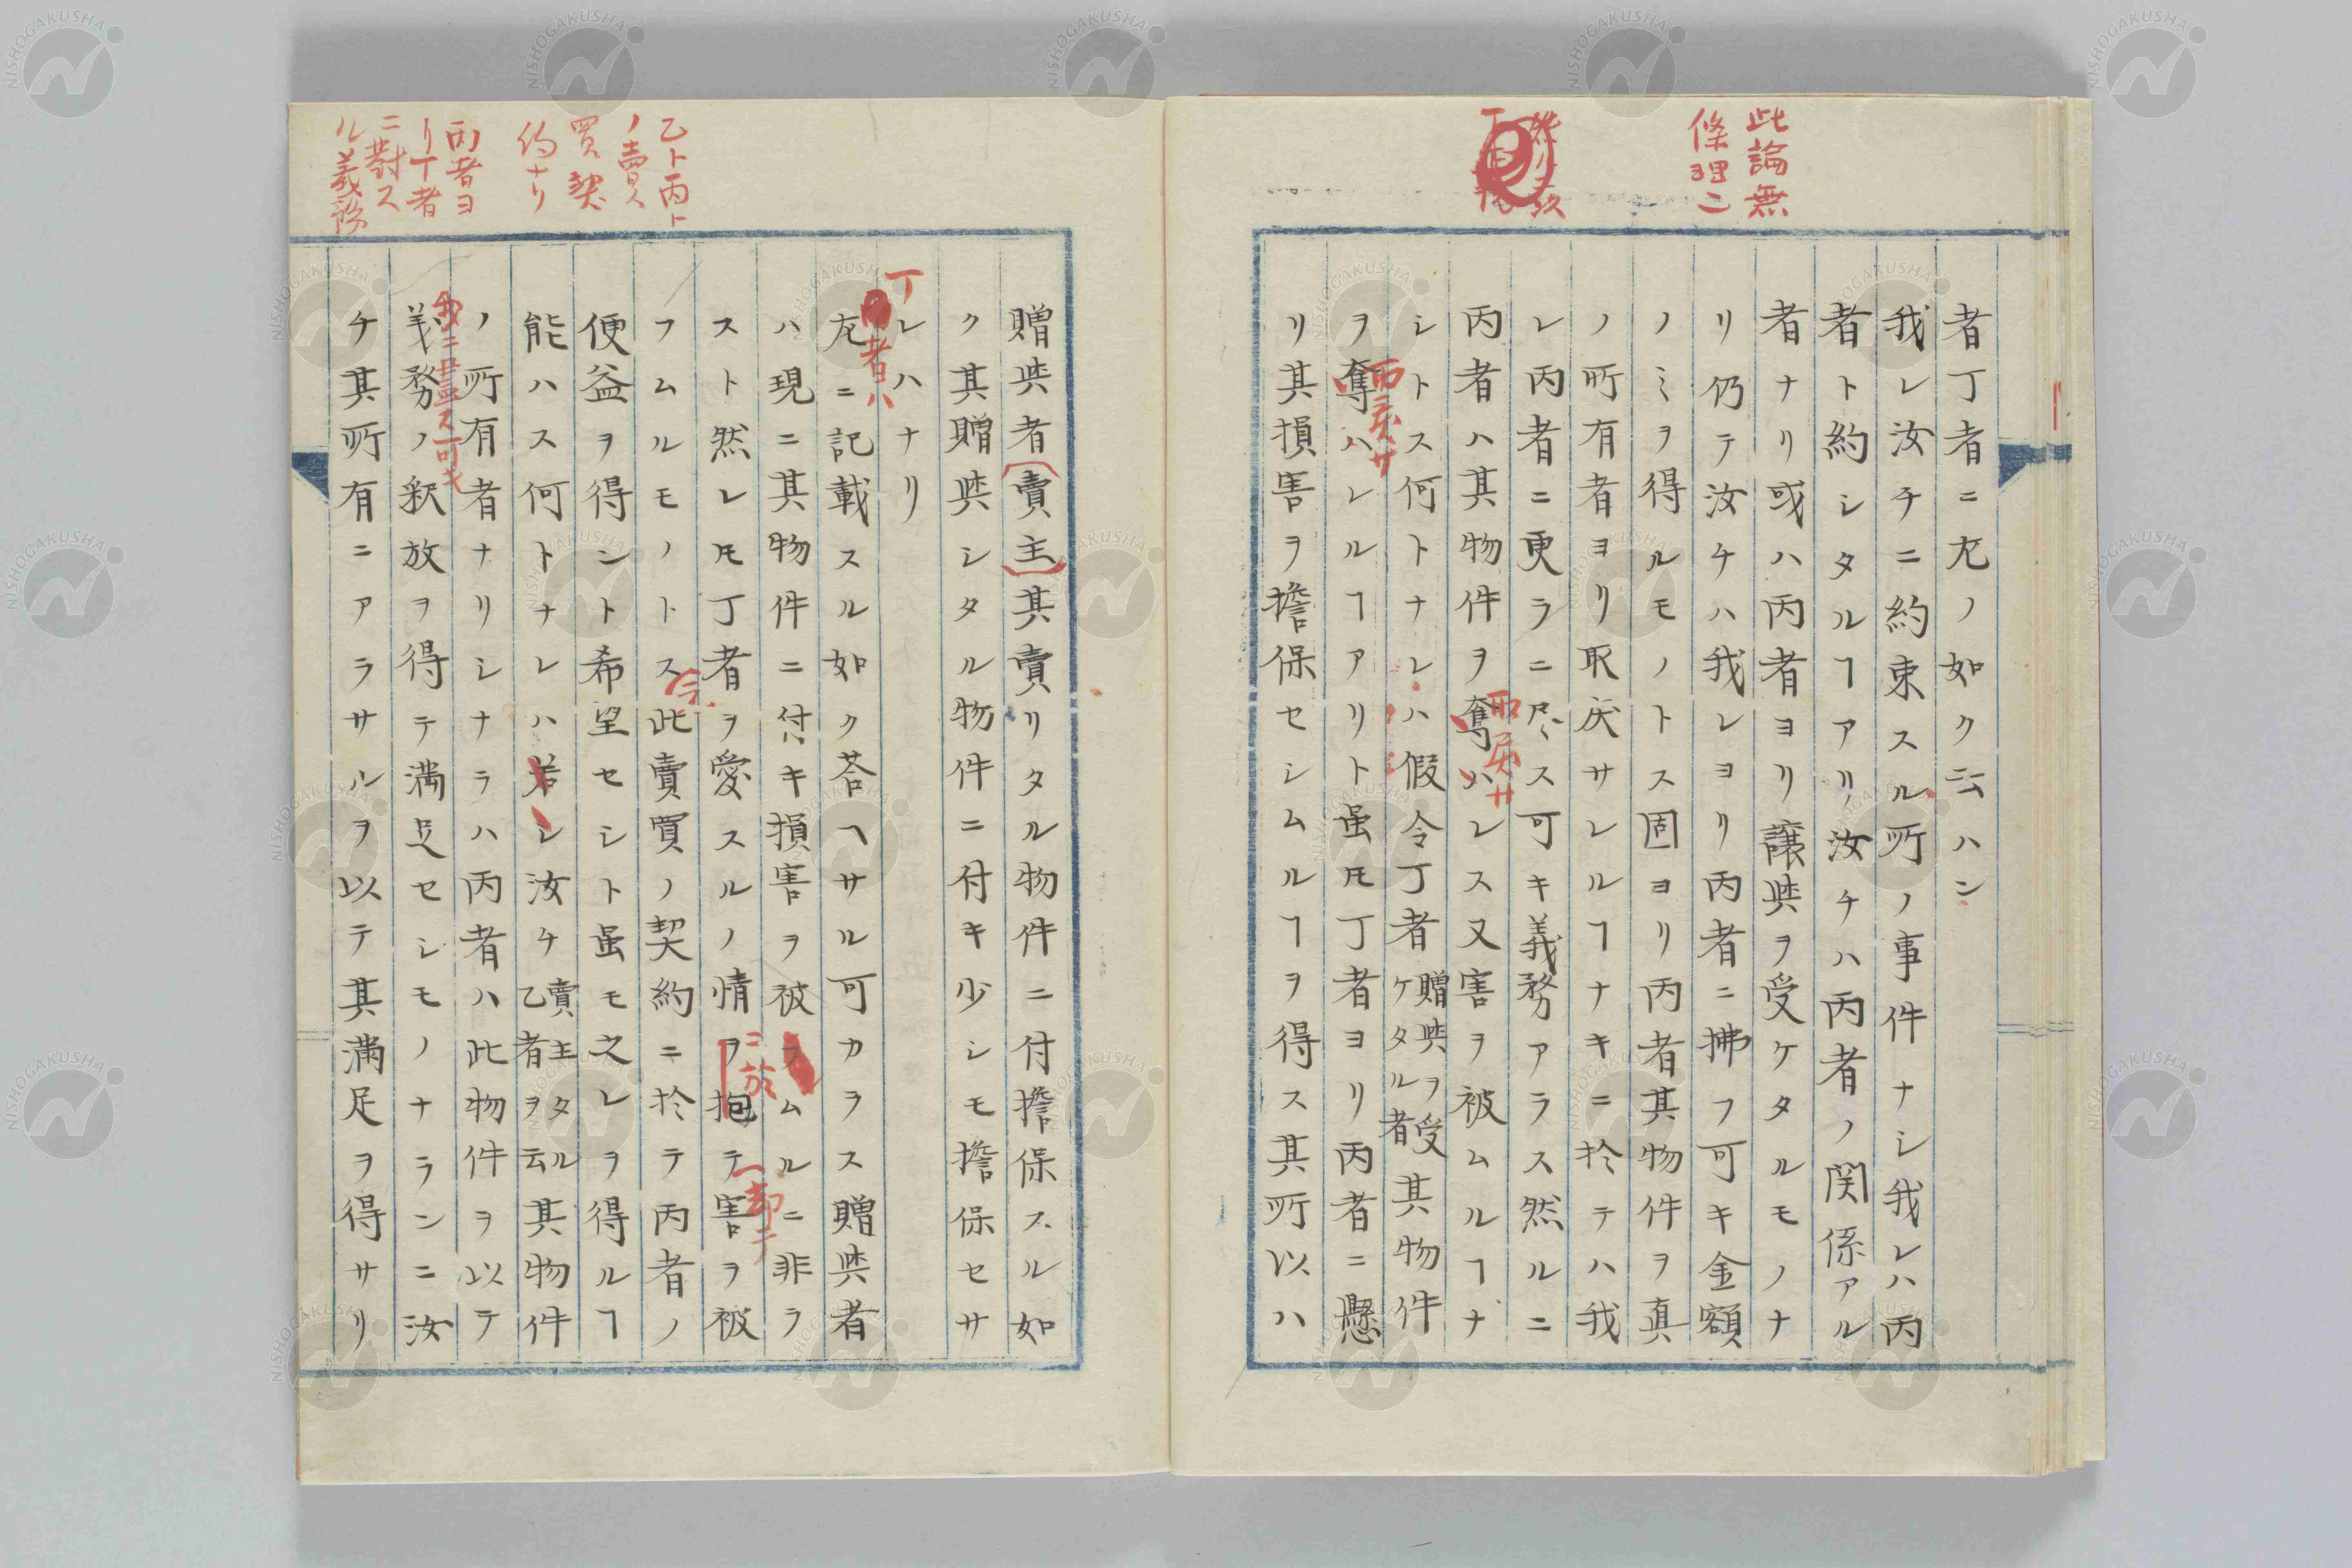 此論無
條理ニ
者丁者ニ左ノ如ク云ハン
我レ汝チニ約束スル所ノ事件ナシ我レハ丙
者ト約シタルヿアリ汝チハ丙者ノ関係アル
者ナリ或ハ丙者ヨリ譲與ヲ受ケタルモノナ
リ仍テ汝チハ我レヨリ丙者ニ拂フ可キ金額
ノミヲ得ルモノトス固ヨリ丙者其物件ヲ真
ノ所有者ヨリ取戻サレルヿナキニ於テハ我
レ丙者ニ更ラニ尽ス可キ義務アラス然ルニ
丙者ハ其物件ヲ奪ハレス又害ヲ被ムルヿナ
取戻サ
シトス何トナレハ假令丁者贈與ヲ受ケタル者其物件
ヲ奪ハレルヿアリト虽モ丁者ヨリ丙者ニ懸
取戻サ
リ其損害ヲ擔保セシムルヿヲ得ス其所以ハ
乙ト丙ト
ノ賣
買契
約ナリ
丙者ヨ
リ丁者
ニ對ス
ル義務
贈與者(賣主)其賣リタル物件ニ付擔保スル如
ク其贈與シタル物件ニ付キ少シモ擔保セサ
レハナリ
丁者ハ
左ニ記載スル如ク荅ヘサル可カラス贈與者
ハ現ニ其物件ニ付キ損害ヲ被ムルニ非ラ
スト然レモ丁者ヲ愛スルノ情ヲ抱テ害ヲ被
却テ
フムルモノトス此賣買ノ契約ニ於テ丙者ノ
便益ヲ得ント希望セシト虽モ之レヲ得ルヿ
能ハス何トナレハ若シ汝チ賣主タル乙者ヲ云其物件
ノ所有者ナリシナラハ丙者ハ此物件ヲ以テ
義務ノ釈放ヲ得テ満足セシモノナランニ汝
チ其所有ニアラサルヲ以テ其満足ヲ得サリ